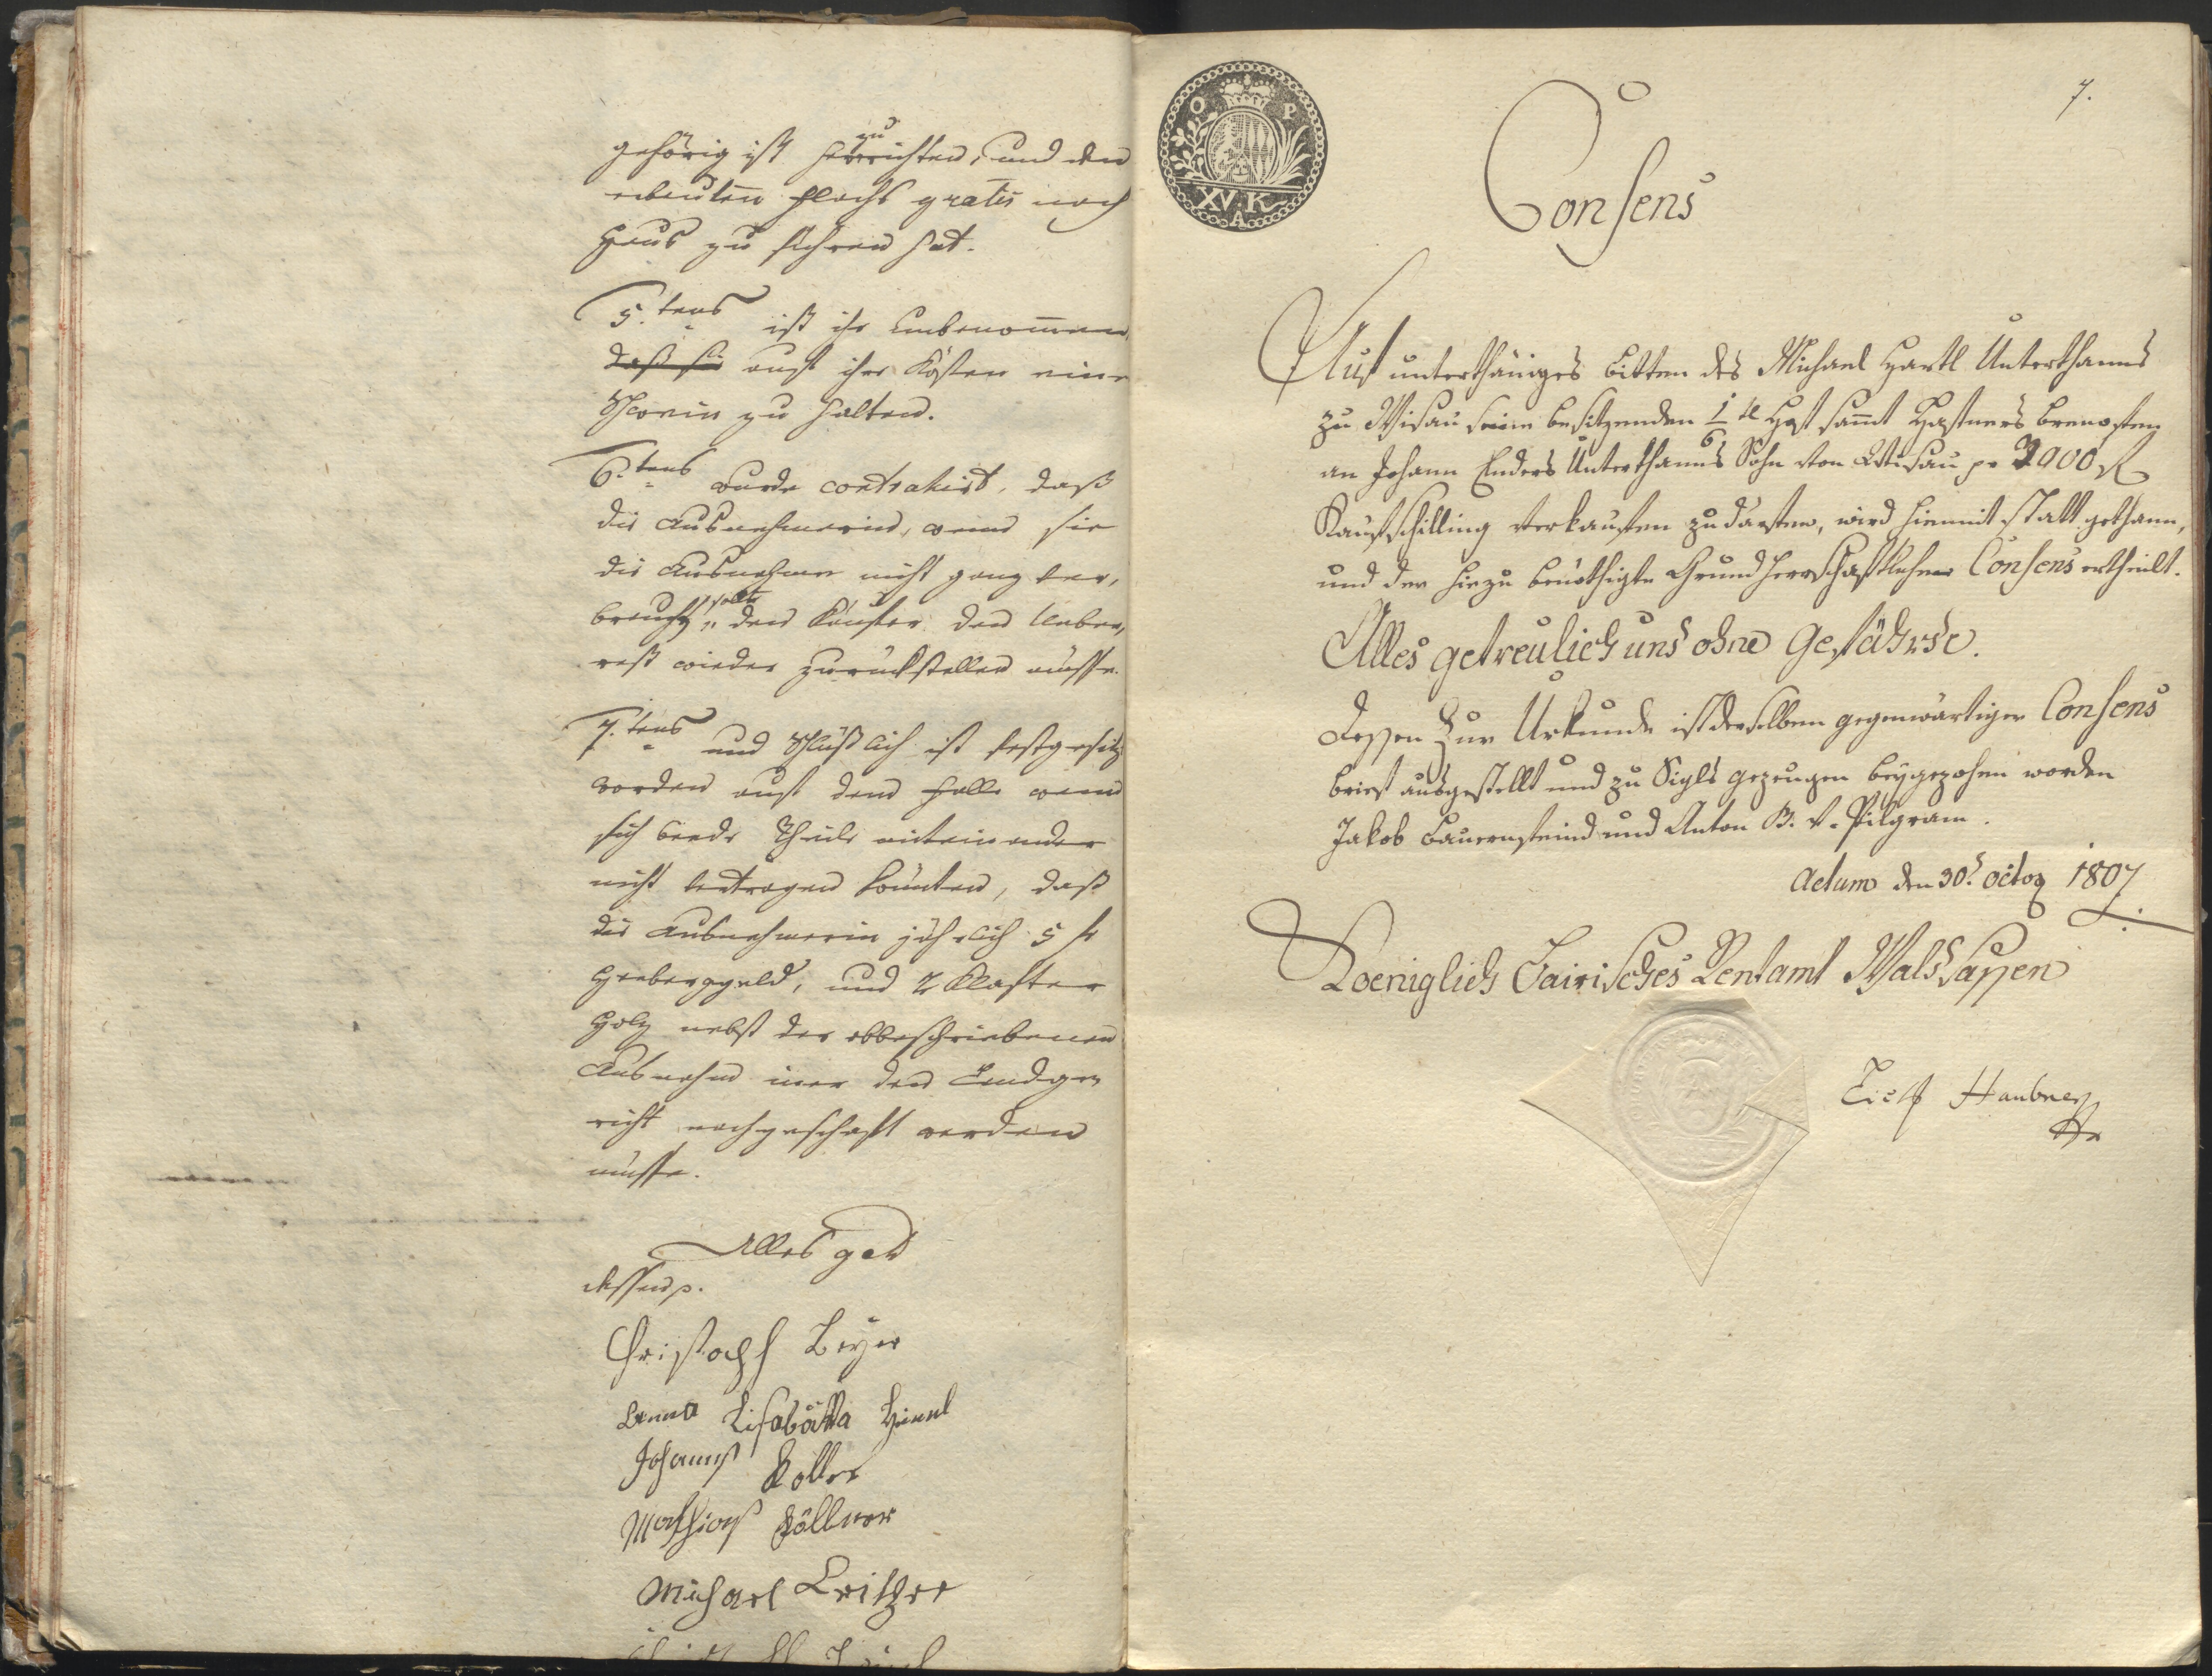 gehörig ist herzurichten, und den
erbauten Flachs gratis nach
Haus zu führen hat.
5.tens ist ihr unbenommen,
daß sie auf ihre Kösten eine
Schwein zu halten.
6.tens wurde contrahirt, daß
die Ausnehmerin, wenn sie
die Ausnahme nicht ganz ver,
brauchen sollte, den Käufer den Ueber,
rest wieder zurückstellen müsse.
7.tens und Schlüßlich ist festgesetzt
worden auf dem Falle wenn
sich beede Theile miteinander
nicht vertragen könnten, daß
die Ausnehmerin jährlich 5 f
Herberggeld, und 2 Klafter
Holz nebst der obbeschriebenen
Ausnahm über den Landge
richt nachgeschaft werden
müsse.
Alles get
dessen p.
Christoph Beyer
Anna Lisabätha
Johannes Koller
Mathias Zöllner
Michael
7.
O P
XV K
A
Consens
Auf unterthäniges Bitten des Michael Hartl Unterthanns
zu Wisau seinen besitzenden 1/6 tl Hof samt
an Johann Enders Unterthanns Sohn von Wisau pr 3900 f
Kaufschilling verkaufen zu därfen, wird hiemit statt gethann,
und der hiezu benöthigte Grundherrschaftliche Consens ertheilt.
Alles getreulich und ohne Gefährde.
Dessen zur Urkunde ist derselben gegenwärtiger Consens
brief ausgestellt und zu Sigls gezeugen beygezohen worden
Jakob Bauernfeind und Anton B. v. Pilgram.
Actum den 30.t octob 1807
Koeniglich Bairisches Rentamt Waldsassen
Haubner